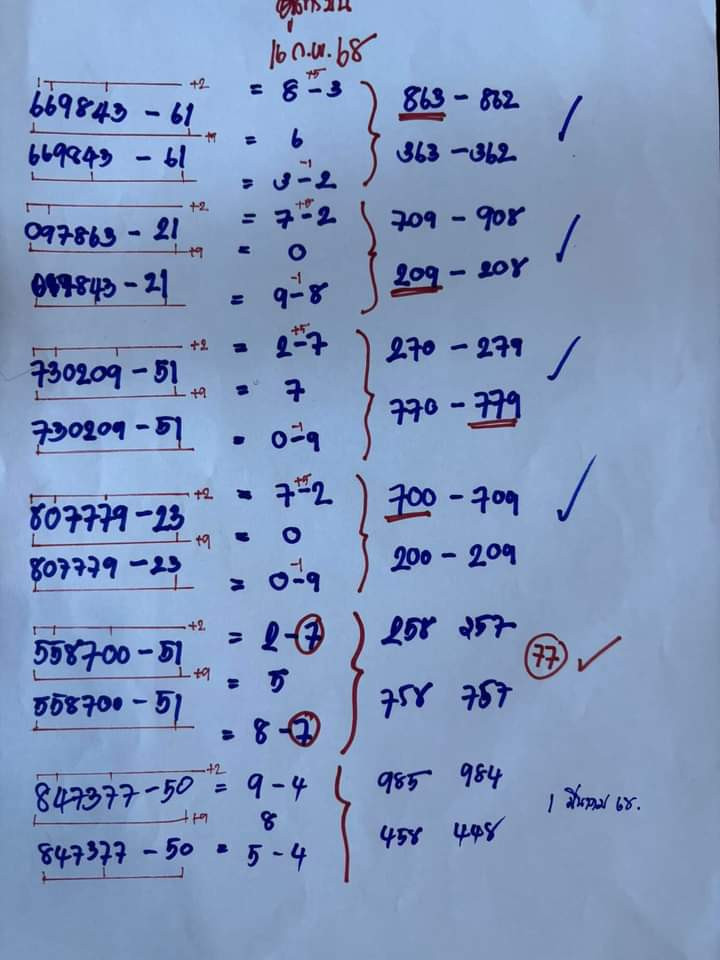 16 ก.พ. 68
+2 = 8 - 3 +5
669843 - 61 863 - 862
= 6
669843 - 61 363 - 362
= 3 - 2 -1
+2 = 7 - 2 +5
097863 - 21 709 - 908
+9 = 0
843 - 21 209 - 208
= 9 - 8 -1
+2 = 2 - 7 +5
730209 - 51 270 - 279
+9 = 7
730209 - 51 770 - 779
= 0 - 9 -1
+2 = 7 - 2 +5
807779 - 23 700 - 709
+9 = 0
807779 - 23 200 - 209
= 0 - 9 -1
+2 = 2 - 7
558700 - 51 258 257
+9 = 5 77
558700 - 51 758 757
= 8 - 7
+2
847377 - 50 = 9 - 4 985 984
+9 8 1 มีนาคม 68.
847377 - 50 = 5 - 4 458 448